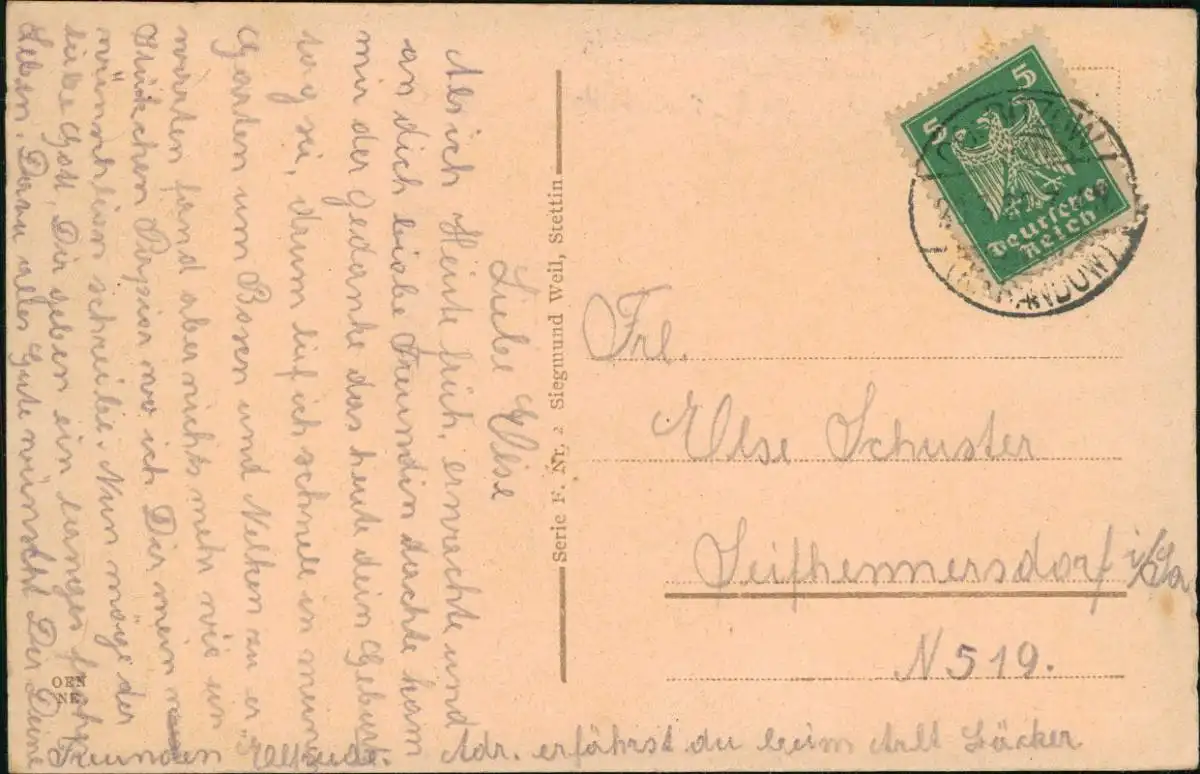 Liebe Else
Als ich Heute früh, erwachte und
an dich liebe Freundin dachte kam
mir der Gedanke das heute dein Geburts
tag sei, drum lief ich schnell in meinen
Garten um Rosen und Nelken zu er
warten fand aber nichts mehr wie ein
Stückchen Papier wo ich Dir mein
wünschlein schreibe. Nun möge der
liebe Gott, Dir geben ein langes
Leben. Dazu alles Gute wünscht Dir Deine
Freundin Elfriede.
Adr. erfährst du beim Arlt Bäcker
Serie F. Nr. 2 Siegmund Weil, Stettin
5
5
Deutsches
Reich
Frl.
Else Schuster
Seifhennersdorf i/Sa
N 519.